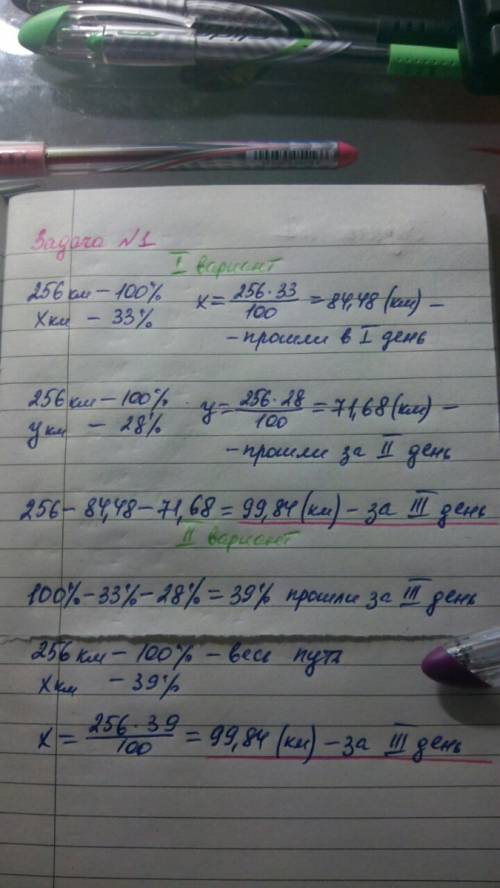 Задача №1
I вариант
256 км – 100% x = 256·33/100 = 84,48 (км) –
x км – 33% – прошли в I день
256 км – 100% y = 256·28/100 = 71,68 (км) –
y км – 28% – прошли за II день
256 – 84,48 – 71,68 = 99,84 (км) – за III день
II вариант
100% – 33% – 28% = 39% прошли за III день
256 км – 100% – весь путь
x км – 39%
x = 256·39/100 = 99,84 (км) – за III день